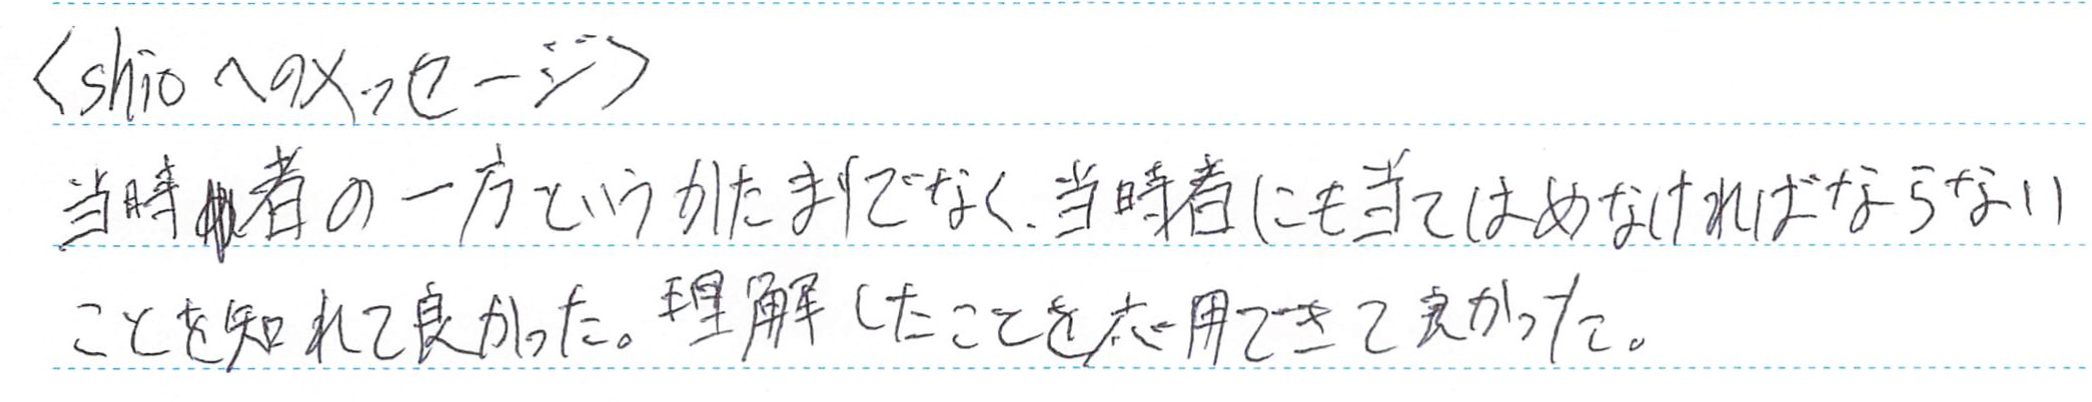 〈shioへのメッセージ〉
当時者の一方というかたまりでなく、当時者にも当てはめなければならない
ことを知れて良かった。理解したことを応用できて良かった。